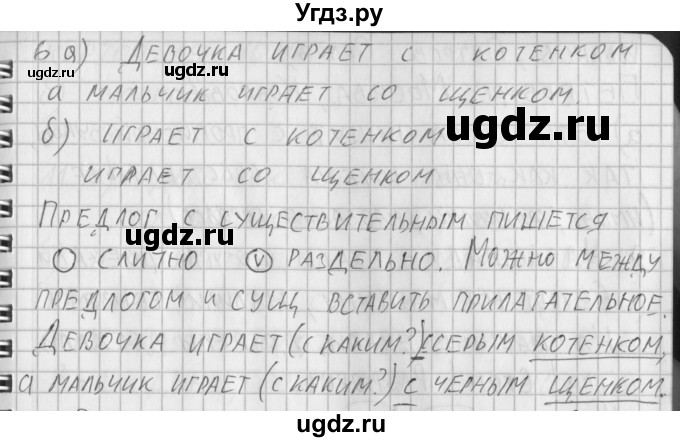 Угдз.ру
6 а) ДЕВОЧКА ИГРАЕТ С КОТЕНКОМ
ugdz.ru ugdz.ru ugdz.ru
а МАЛЬЧИК ИГРАЕТ СО ЩЕНКОМ.
б) ИГРАЕТ С КОТЕНКОМ
ugdz.ru
ИГРАЕТ СО ЩЕНКОМ
ПРЕДЛОГ С СУЩЕСТВИТЕЛЬНЫМ ПИШЕТСЯ
ugdz.ru
○ СЛИТНО ⓥ РАЗДЕЛЬНО. МОЖНО МЕЖДУ
ПРЕДЛОГОМ И СУЩ ВСТАВИТЬ ПРИЛАГАТЕЛЬНОЕ.
ДЕВОЧКА ИГРАЕТ (С КАКИМ?) С СЕРЫМ КОТЕНКОМ,
а МАЛЬЧИК ИГРАЕТ (С КАКИМ?) С ЧЕРНЫМ ЩЕНКОМ.
ugdz.ru